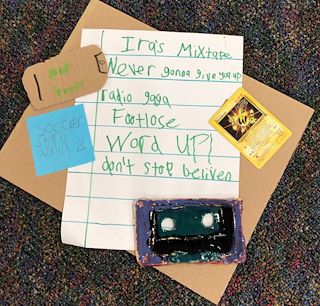 Ira's Mixtape
Never gonna give you up
radio gaga
Footlose
Word UP!
don't stop beliven
Soccer